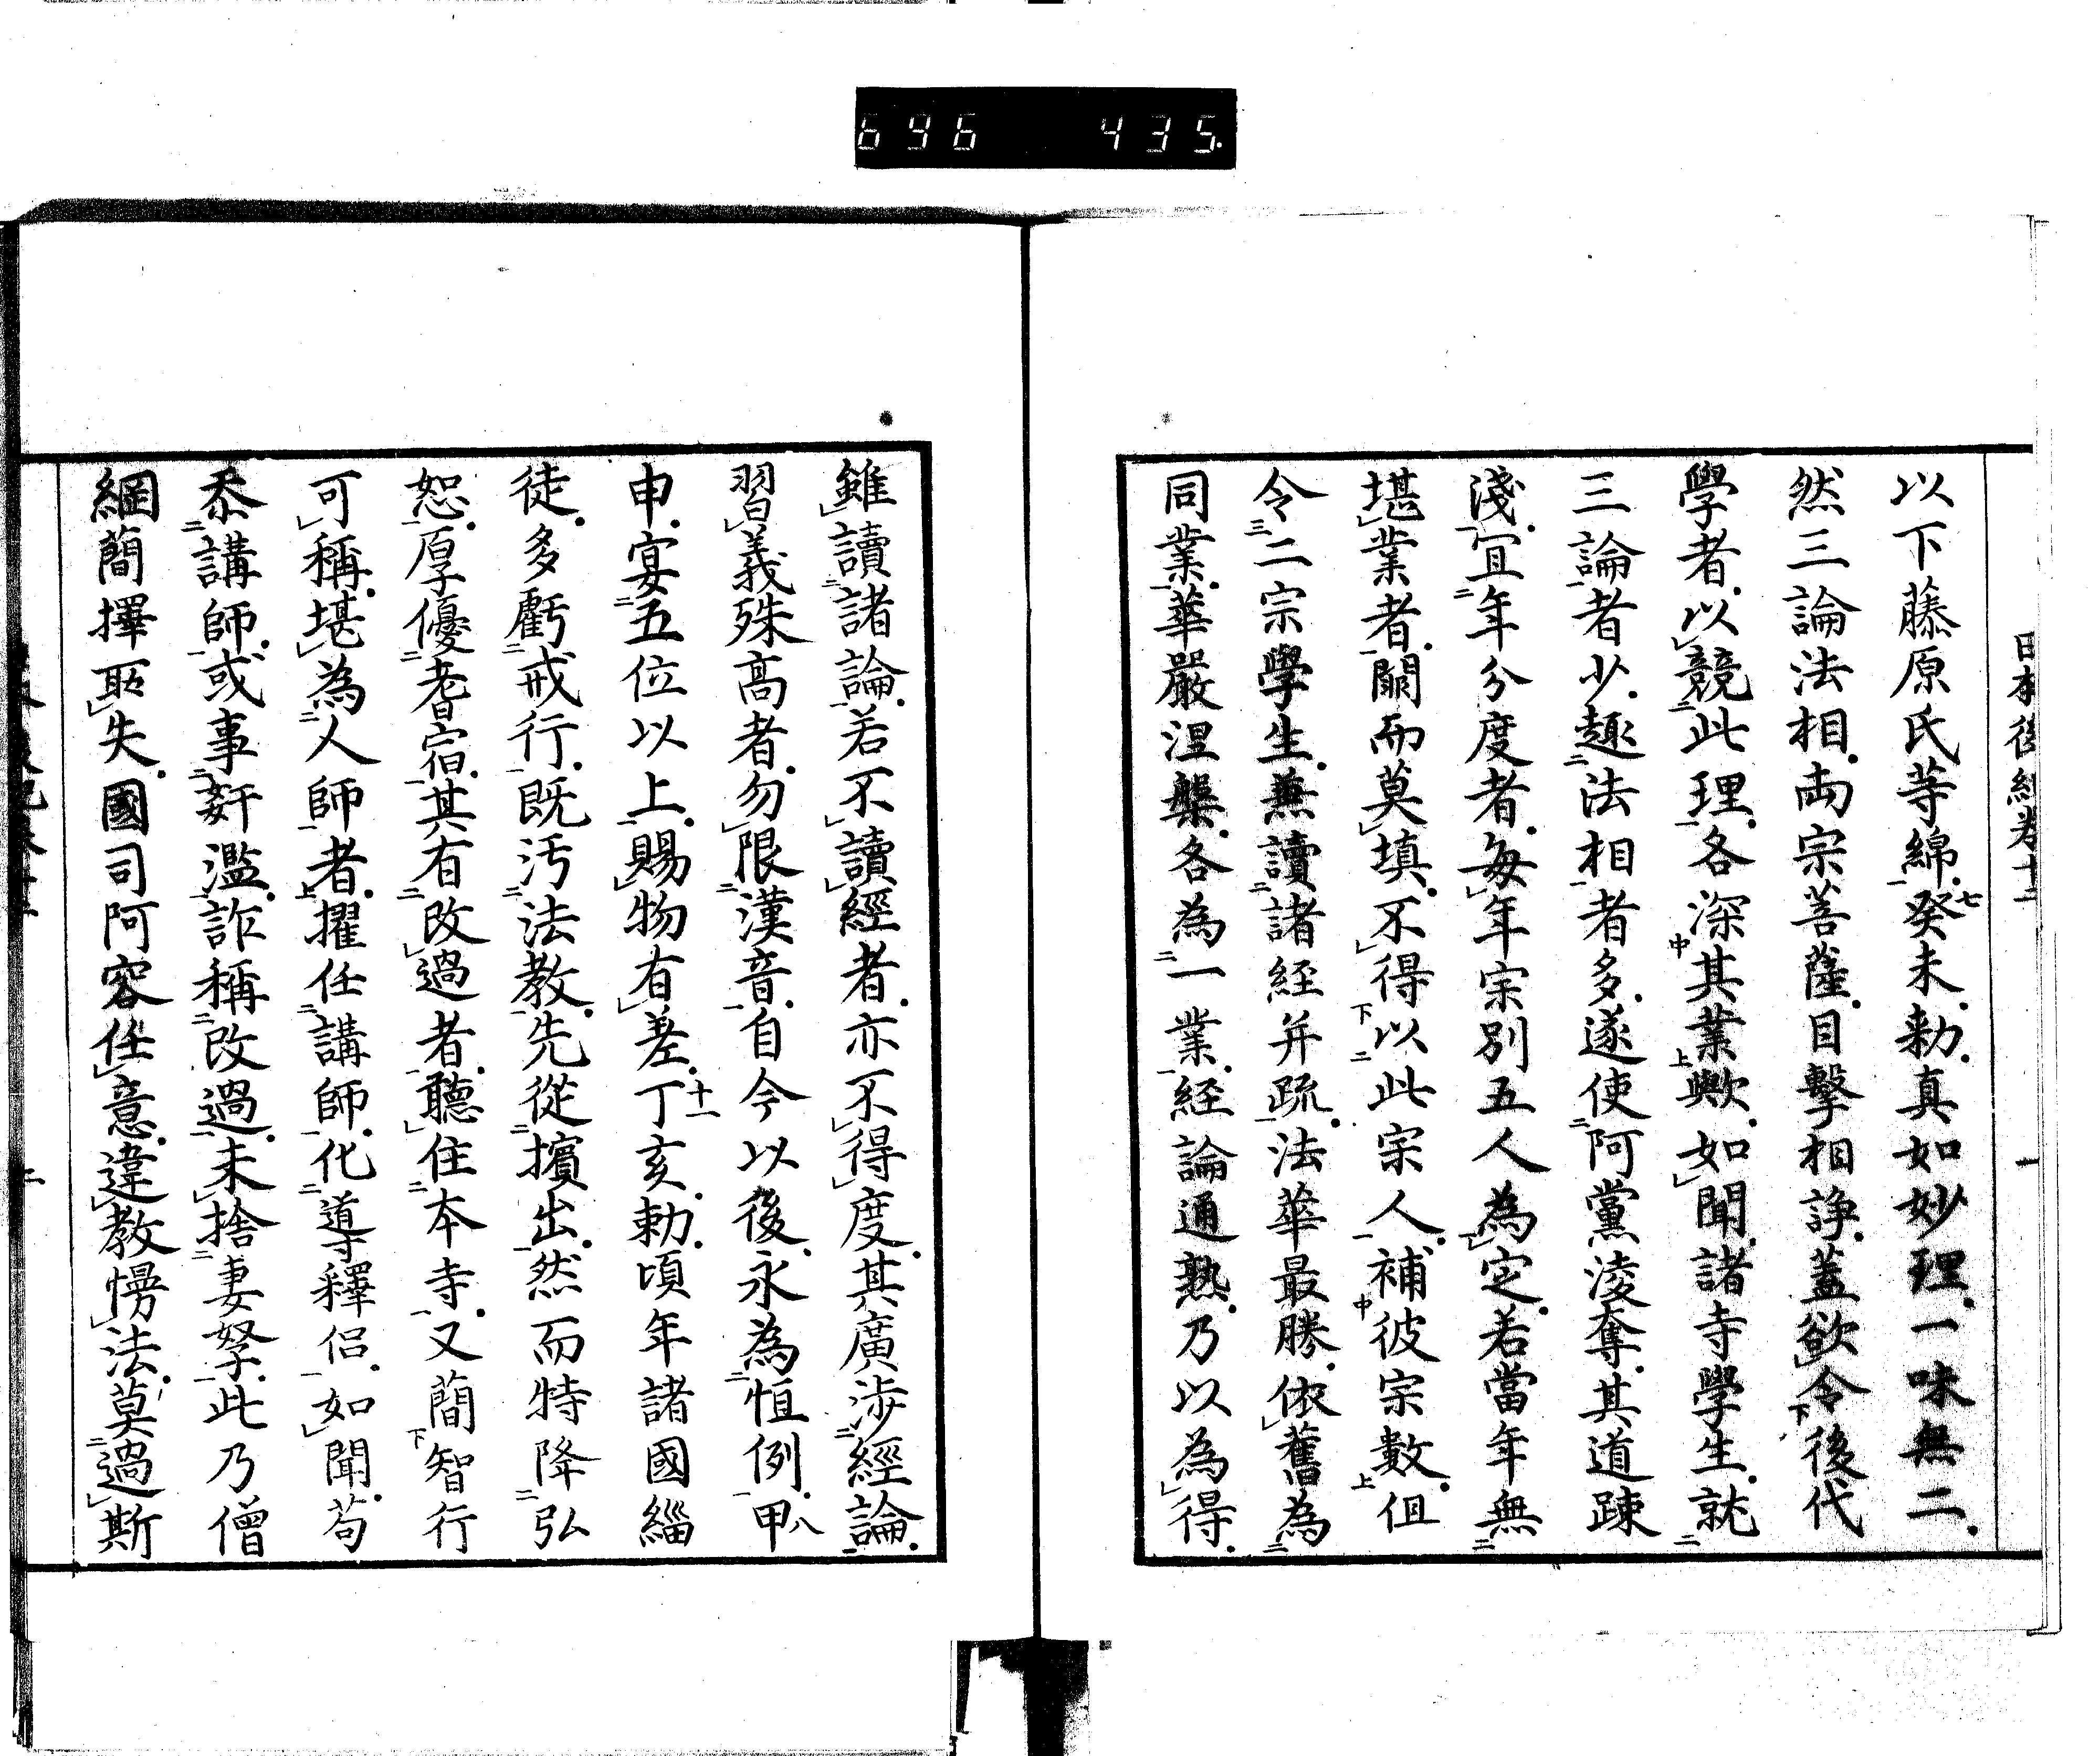 696 435
日本後紀卷十二 一
以下藤原氏等綿癸未勅真如妙理一味無二
然三論法相両宗菩薩目擊相諍蓋欲令後代
學者以競此理各深其業歟如聞諸寺學生就
三論者少趣法相者多遂使阿黨淩奪其道疎
淺宜年分度者每年宗別五人為定若當年無
堪業者闕而莫填不得以此宗人補彼宗數但
令二宗學生兼讀諸経并疏法華最勝依舊為
同業華嚴涅槃各為一業経論通熟乃以為得
雖讀諸論若不讀經者亦不得度其廣涉經論
習義殊高者勿限漢音自今以後永為恒例甲
申宴五位以上賜物有差丁亥勅頃年諸國緇
徒多虧戒行既汚法教先從擯出然而特降弘
恕厚優耆宿其有改過者聽住本寺又簡智行
可稱堪為人師者擢任講師化導釋侶如聞苟
忝講師或事姧濫詐稱改過未捨妻孥此乃僧
綱簡擇取失國司阿容任意違教慢法莫過斯